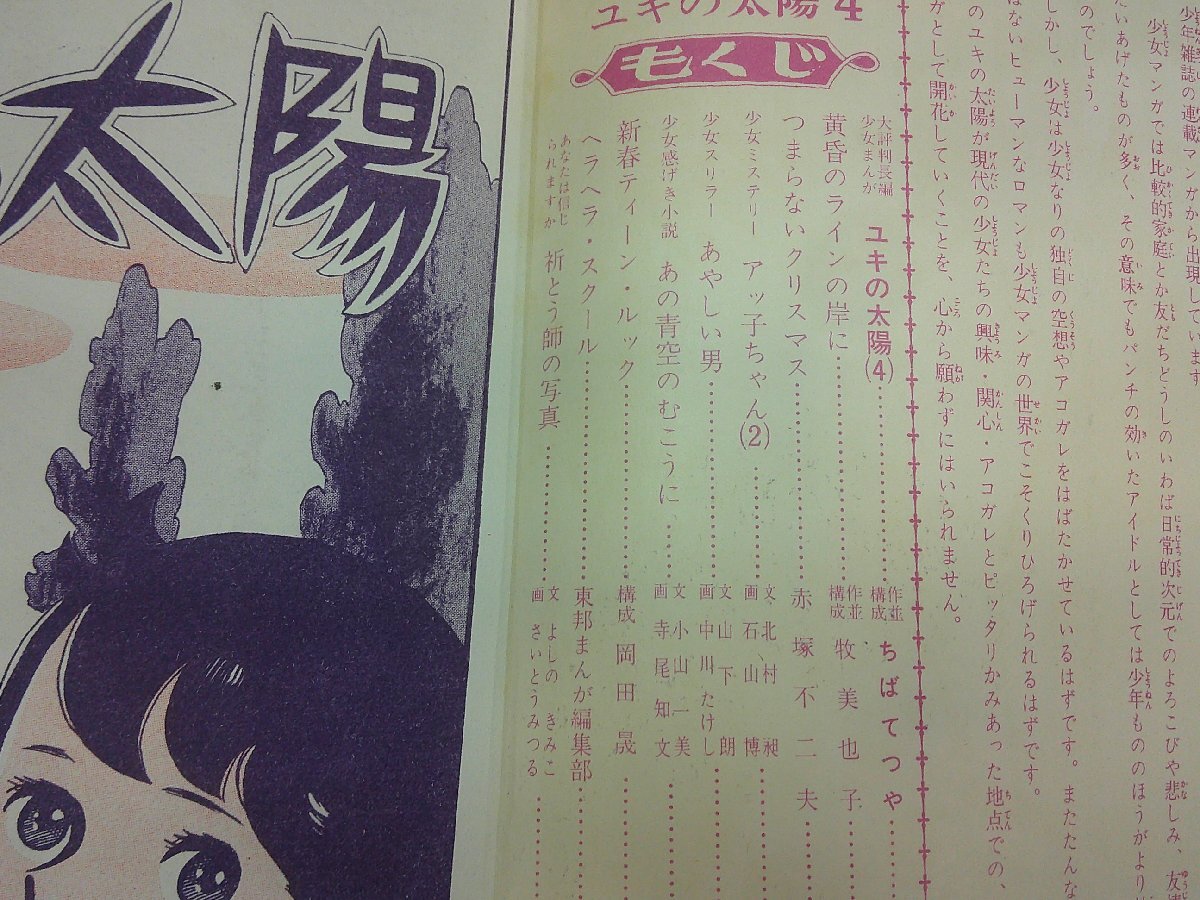 少年雑誌の連載マンガから出現しています
少女マンガでは比較的家庭とか友だちどうしのいわば日常的次元でのよろこびや悲しみ、友情
たいあげたものが多く、その意味でもパンチの効いたアイドルとしては少年もののほうがより
のでしょう。
しかし、少女は少女なりの独自の空想やアコガレをはばたかせているはずです。またたんな
はないヒューマンなロマンも少女マンガの世界でこそくりひろげられるはずです。
のユキの太陽が現代の少女たちの興味・関心・アコガレとピッタリかみあった地点での、
ガとして開花していくことを、心から願わずにはいられません。
ユキの太陽4
毛くじ
大評判長編少女まんが ユキの太陽(4) 作並構成 ちばてつや
黄昏のラインの岸に 作並構成 牧美也子
つまらないクリスマス 赤塚不二夫
少女ミステリー アッ子ちゃん(2) 文、北村 昶 画 石山 博
少女スリラー あやしい男 文 山下 朗 画 中川たけし
少女感げき小説 あの青空のむこうに 文 小山一美 画 寺尾知文
新春ティーン・ルック 構成 岡田 晟
ヘラヘラ・スクール 東邦まんが編集部
あなたは信じられますか 祈とう師の写真 文 よしの きみこ 画 さいとうみつる
太陽